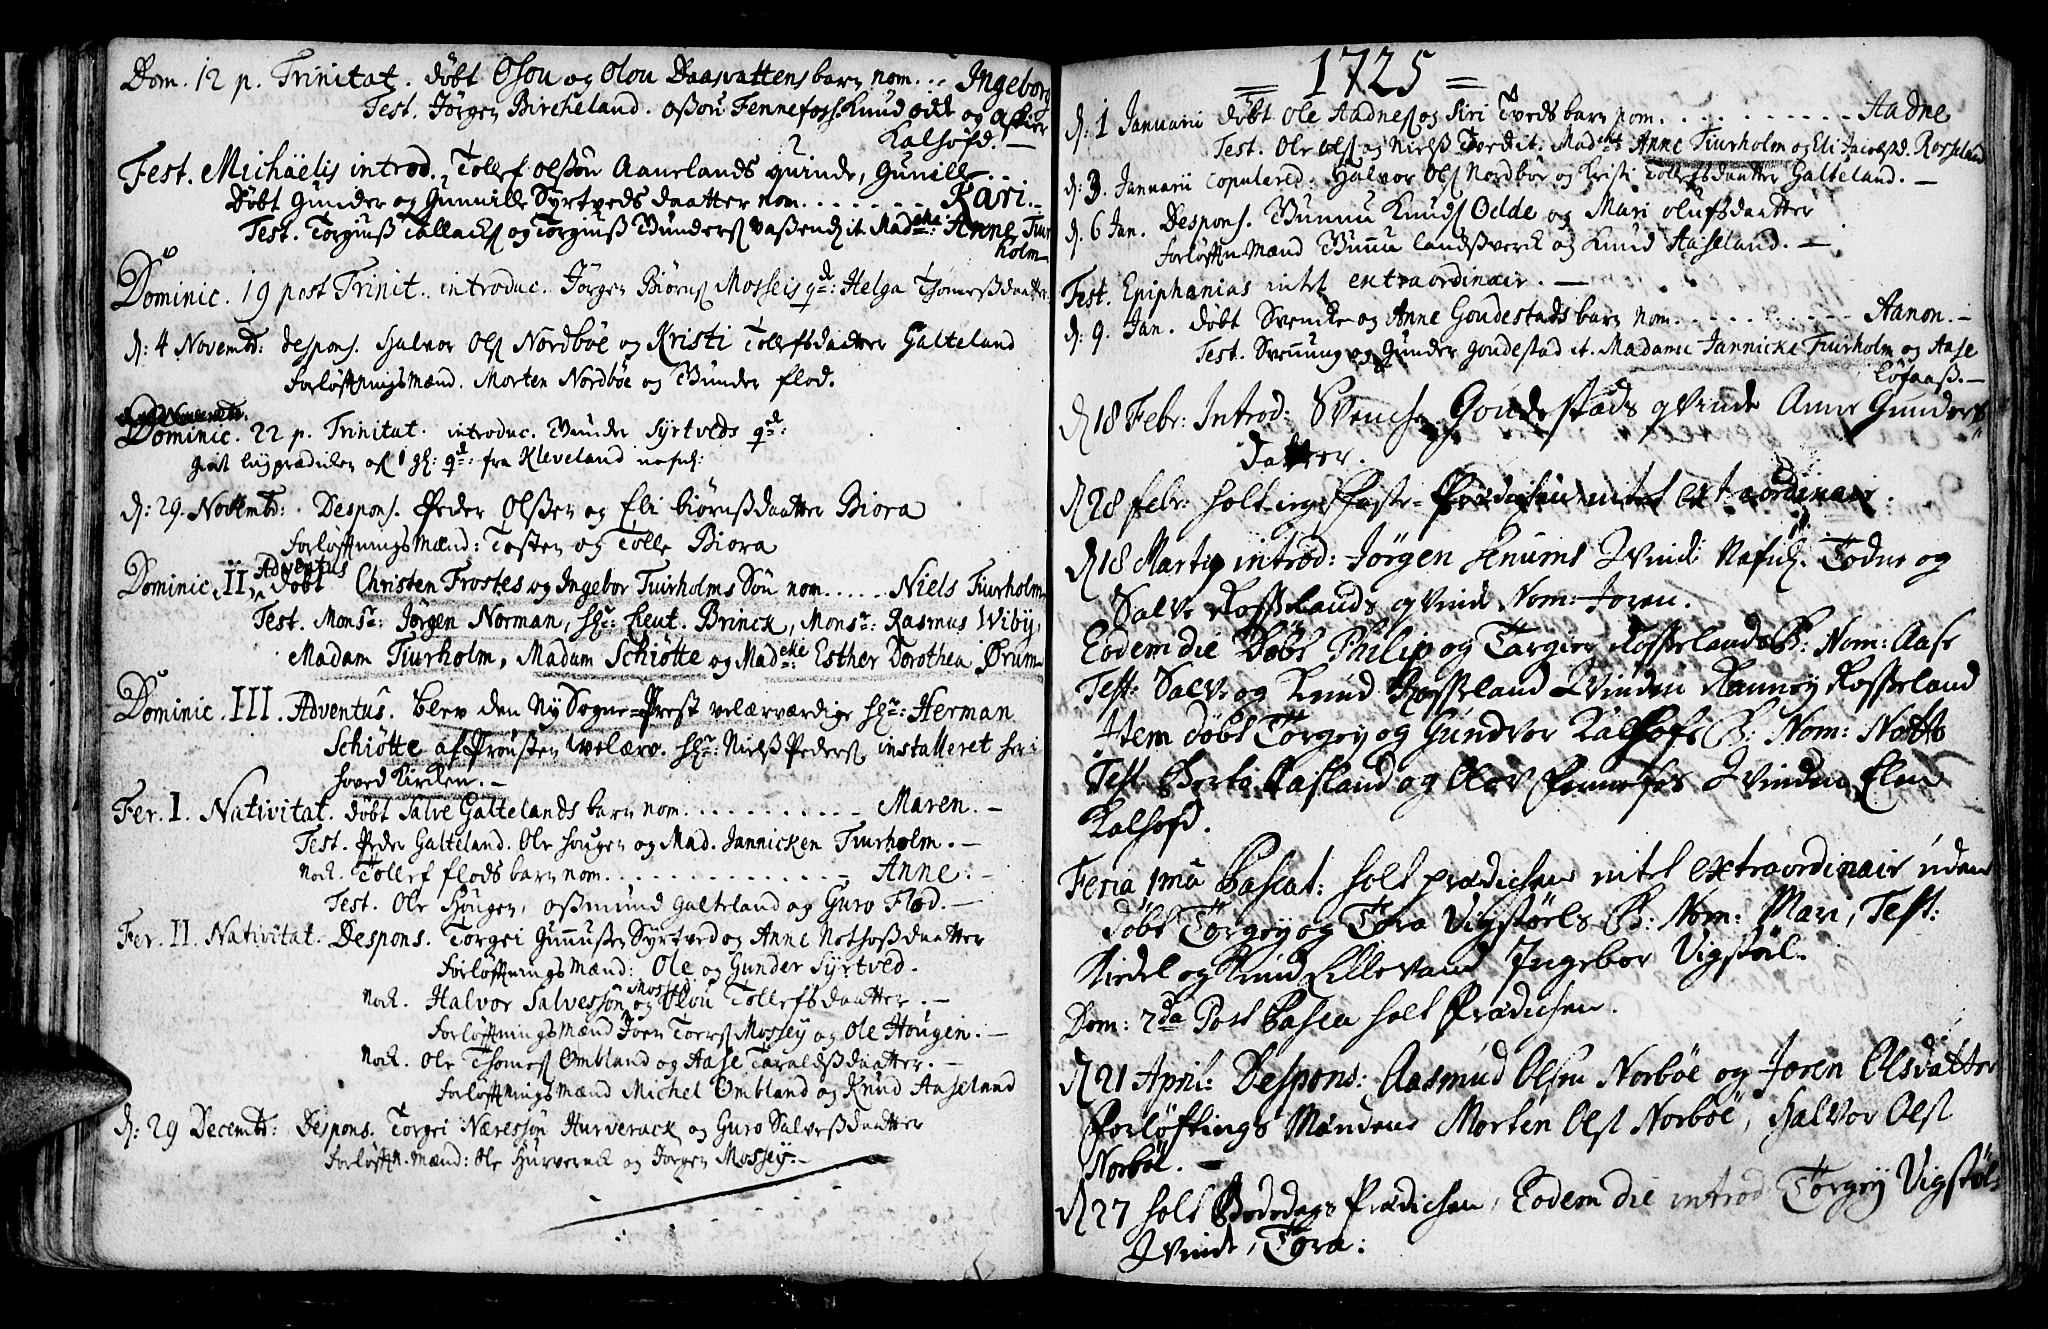 Dom. 12 p. Trinitat. døbt Osou og Olou Daasvattens barn nom. .. Ingeborg
Test. Jørgen Bircheland. Oßou Fennefoss. Knud odt og Assier
Kalhofd. —
Fest. Michäelis introd. Tollef olßøn Aaurlands quinde, Gunille. . .
Døbt Gunder og Gunnille Syrtveds daatter nom. . . . . . . Kari. -
Test. Torgiuß Tallacks og Torgiuß Gunders Vaßend, it. Mad: Anne Tuur
holm
Dominic. 19 post Trinit. introduc. Jørgen Biørns Mosseis qd: Helga Thomeßdaatter
d: 4 Novembr: despons. Halvor Ols Nordbøe og Kristi Tollefsdaatter Galteland
forløftningsmænd. Morten Nordbøe og Gunder flod.
Dominic. 22 p. Trinitat. introduc. Gunder Syrtveds qd:
fra Kleveland
d: 29. Novembr: Despons. Peder Olßen og Eli biørnßdaatter Biora
forløftningsmænd: Tosten og Tolle Biora
Adventus
Dominic. II. døbt Christen Frostes og Ingebor Tuirholms Søn nom. . . . . . Niels Tuirholm
Test. Monsr: Jørgen Norman, Hr: Leut. Brinck, Monsr: Rasmus Wiby,
Madam Tiurholm, Madam Schiøtte og Mad: Esther Dorothea Ørum
Dominic. III. Adventus. blev den Ny Sogne-Prest velærværdige Hr: Herman
Schiøtte af Proußen welærv. Hr: Nielß Peders installeret her i
hovedkircken. —
Fer. I. Nativitat. døbt Salve Galtelands barn nom. . . . . . . . . . . Maren. —
Test. Peder Galteland. Ole Hougen og Mad. Jannicken Tuurholm. —
Nock. Tollef flods barn nom. . . . . . . . . . . . . . . Anne. -
Test. Ole Hougen, Oßmund Galteland og Guro Flod. —
Fer. II. Nativitat. Despons. Torgei Gunnußen Syrtved og Anne Nothoßdaatter
forløftningsmænd: Ole og Gunder Syrtved.
Mossei
Nock. Halvor Salvessøn og Olou Tollefsdaatter. —
forløftningsmænd Joen Toers Mossey og Ole Hougen. —
Nock. Ole Thomes Ombland og Aase Taraldßdaatter. —
forløftningsmænd Michel Ombland og Knud Aaseland
d: 29 Decembr: Despons. Torgei Næressøn Hurverack og Guro Salveßdaatter
forløftn.mænd: Ole Hurverack og Jørgen Mossey. —
= 1725 =
d: 1 Januarii døbt Ole Aadnes og Siri Tveds barn nom. . . . . . . . . . Aadne
Test. Ole Ols og Nielß Tved it. Mad: Anne Tuurholm og Eli Jacobsd. Rosseland
d: 3. Januarii Copulered. Halvor Ols Nordbøe og Kristi Tollefsdaatter Galteland. —
d. 6 Jan. Despons. Gunnu Knuds Odde og Mari olufsdaatter
forløftn. Mænd Gunnu landßverck og Knud Aaseland. —
Fest. Epiphanias intet extraordinair. —
d: 9. Jan. døbt Svencke og Anne Goudestads barn nom. . . . . . . . . . Aanon. -
Test. Svenung og Gunder Goudestad it. Madame Jannicke Tuirholm og Aase
Løfaaß. —
d 18 Febr: Introd: Svenche Goudestads qvinde Anne Gunders
datter.
d 28 febr: holt ingl. Faste-Prædichen intet extraordinair.
d 18 Martij introd: Jørgen Senums Qvinde Nafnl. Todne og
Salve Rosselands qvinde Nom: Joren.
Eodem die Døbt Philip og Targier Rosselands B: Nom: Aase
Test: Salve og Knud Rosseland Qvinden Ranney Rosseland
Item døbt Torgey og Gundvor Kalhofs B: Nom: Notto
Test Aasland og Olov Fennefos Qvinden Elen
Kalhofd.
Feria 1ma Pascat: holt prædichen intet extraordinair uden
døbt Torgey og Tora Vigstøls B: Nom: Mari, Test:
Kiedel og Knud Lillevand Ingebor Vigstøl.
Dom: 2da Post Pasca holt Prædichen.
d 21 April: Despons: Aasmud Olsen Norbøe og Joren Olsdatter
Forløftings Mændene Morten Olst Norbøe, Halvor Olst
Norbøe. —
d 27 holt Bededags Prædichen, Eodem die introd Torgey Vigstøl
Qvinde, Tora: